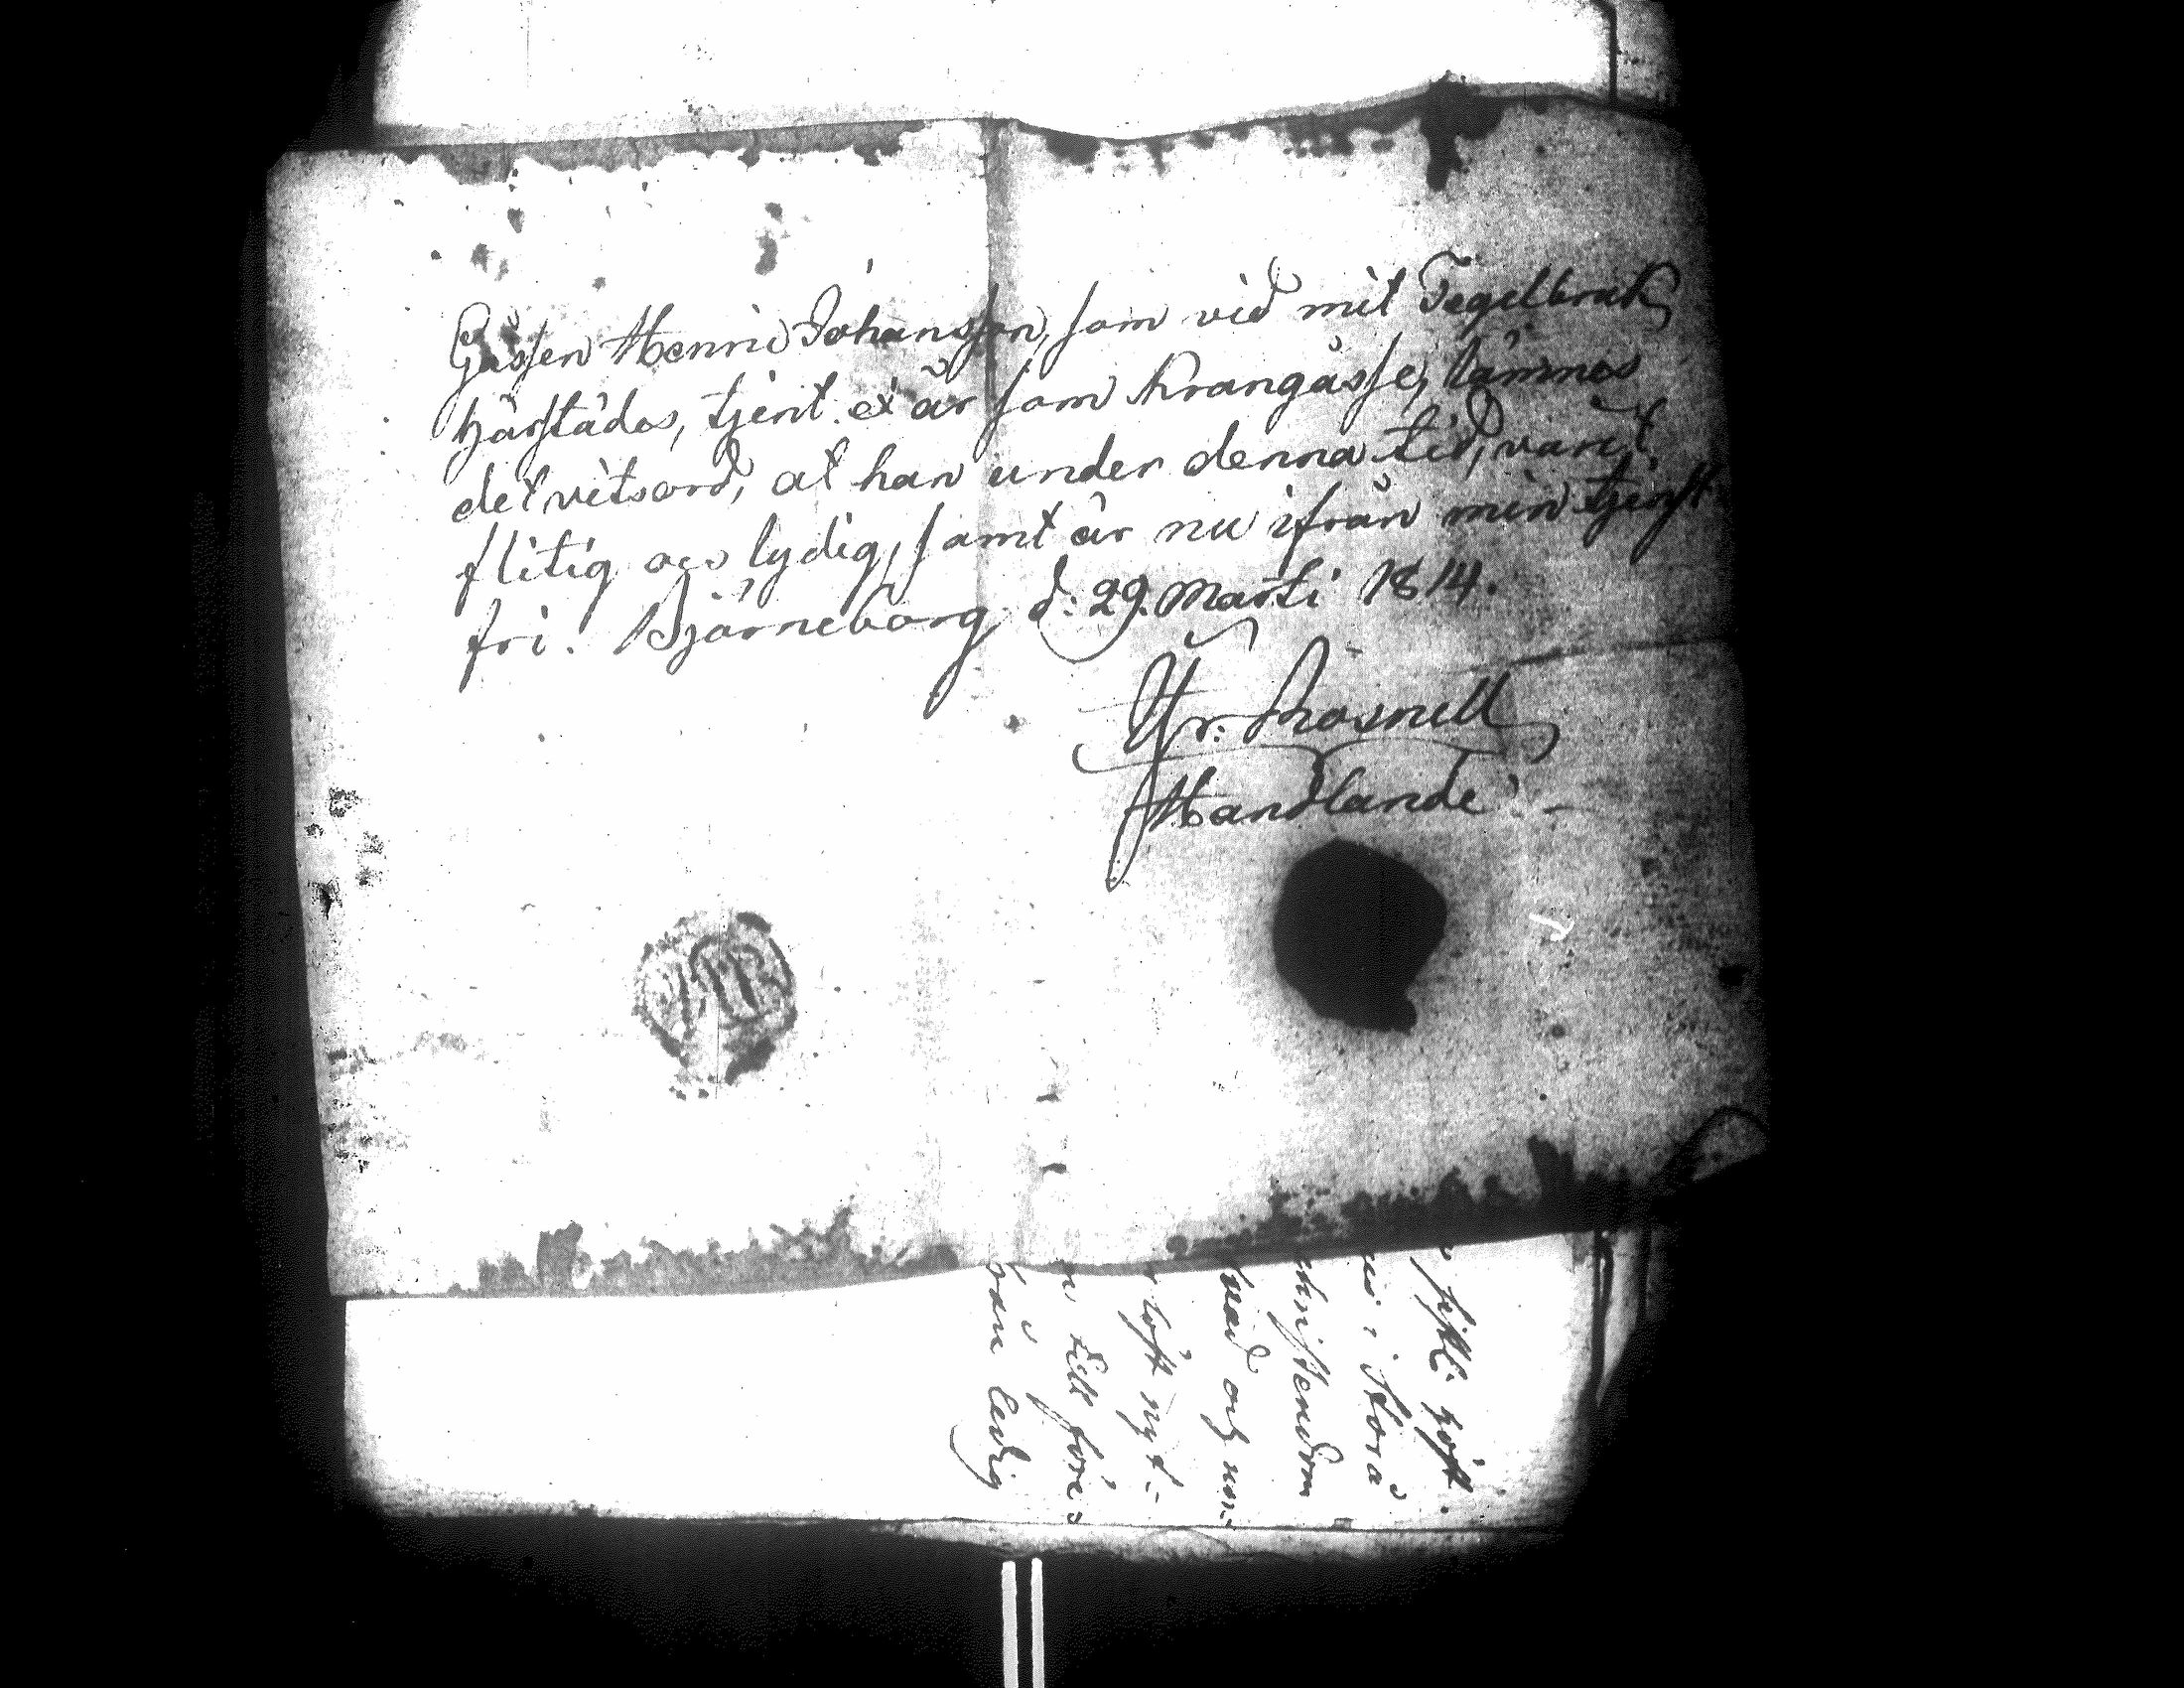 Gåssen Henric Johansson, som vid mit Tegelbruk
härstädes, tjent et år som Krangåsse, lämnas
det vitsord, at han under denna tid, varit
flitig och lydig, samt är nu ifrån min tjenst
fri. Björneborg d: 29. Marti 1814.
Fr: Rosnell
Handlande